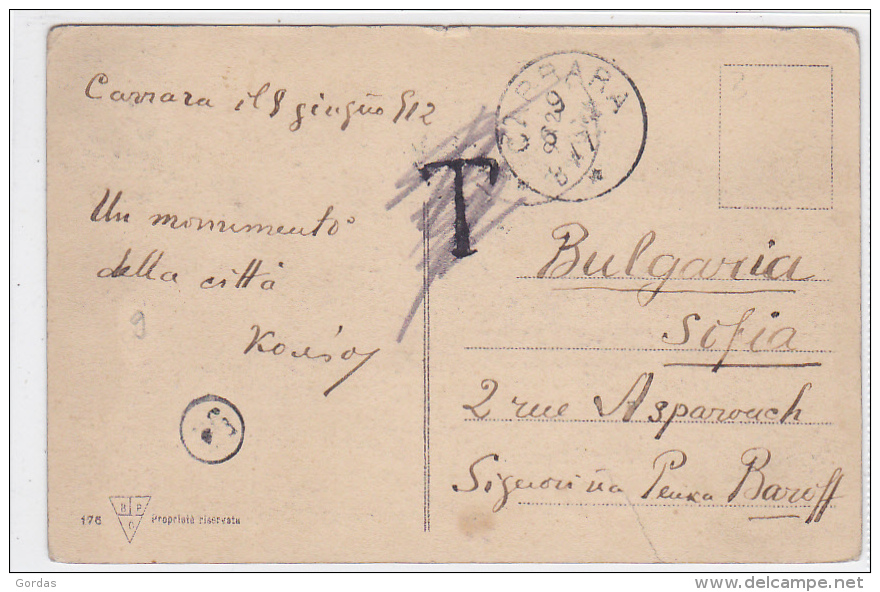 Carrara il 8 giugno 912
Un monumento
della città
9
T
CARRARA
Bulgaria
Sofia
2 rue Asparouch
Signorina Penka Baroff
176
B P
C
Proprietà riservata
Gordas
www.delcampe.net